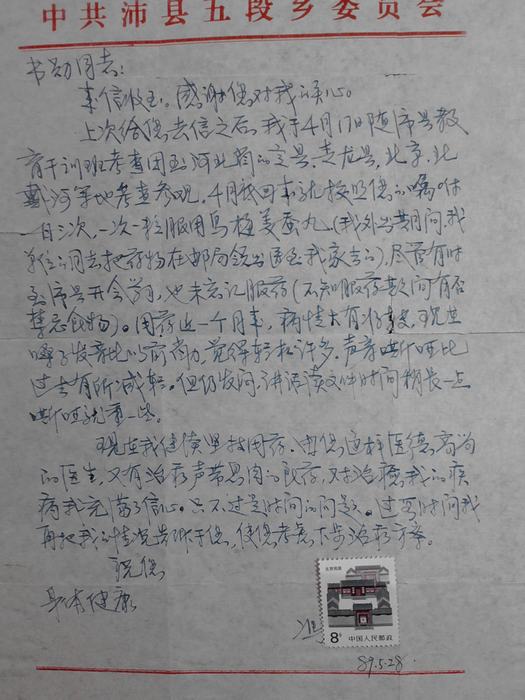 中共沛县五段乡委员会
书勋同志：
来信收到。感谢您对我的关心。
上次给您去信之后，我于4月17日随沛县教
育干训班考查团到河北省的定县、青龙县，北京，北
戴河等地考查参观，4月底回来就按照您的嘱咐
一日三次，一次一粒服用乌梅姜蚕丸（我外出期间，我
单位的同志把药物在邮局领出送到我家去的），尽管有时
到沛县开会学习，也未忘记服药（不知服药期间有否
禁忌食物）。用药近一个月来，病情大有好转，现在
嗓子发音比以前有力，觉得轻松许多，声音嘶哑比
过去有所减轻。但仍发闷，讲话读文件时间稍长一点
嘶哑就重一些。
现在我继续坚持用药。由您这样医德高尚
的医生，又有治疗声带息肉的良药，对治疗我的疾
病我充满了信心。只不过是时间的问题。过段时间我
再把我的情况告诉于您，使您考虑下步治疗方案。
祝您
身体健康
北京民居
8分 中国人民邮政
89.5.28